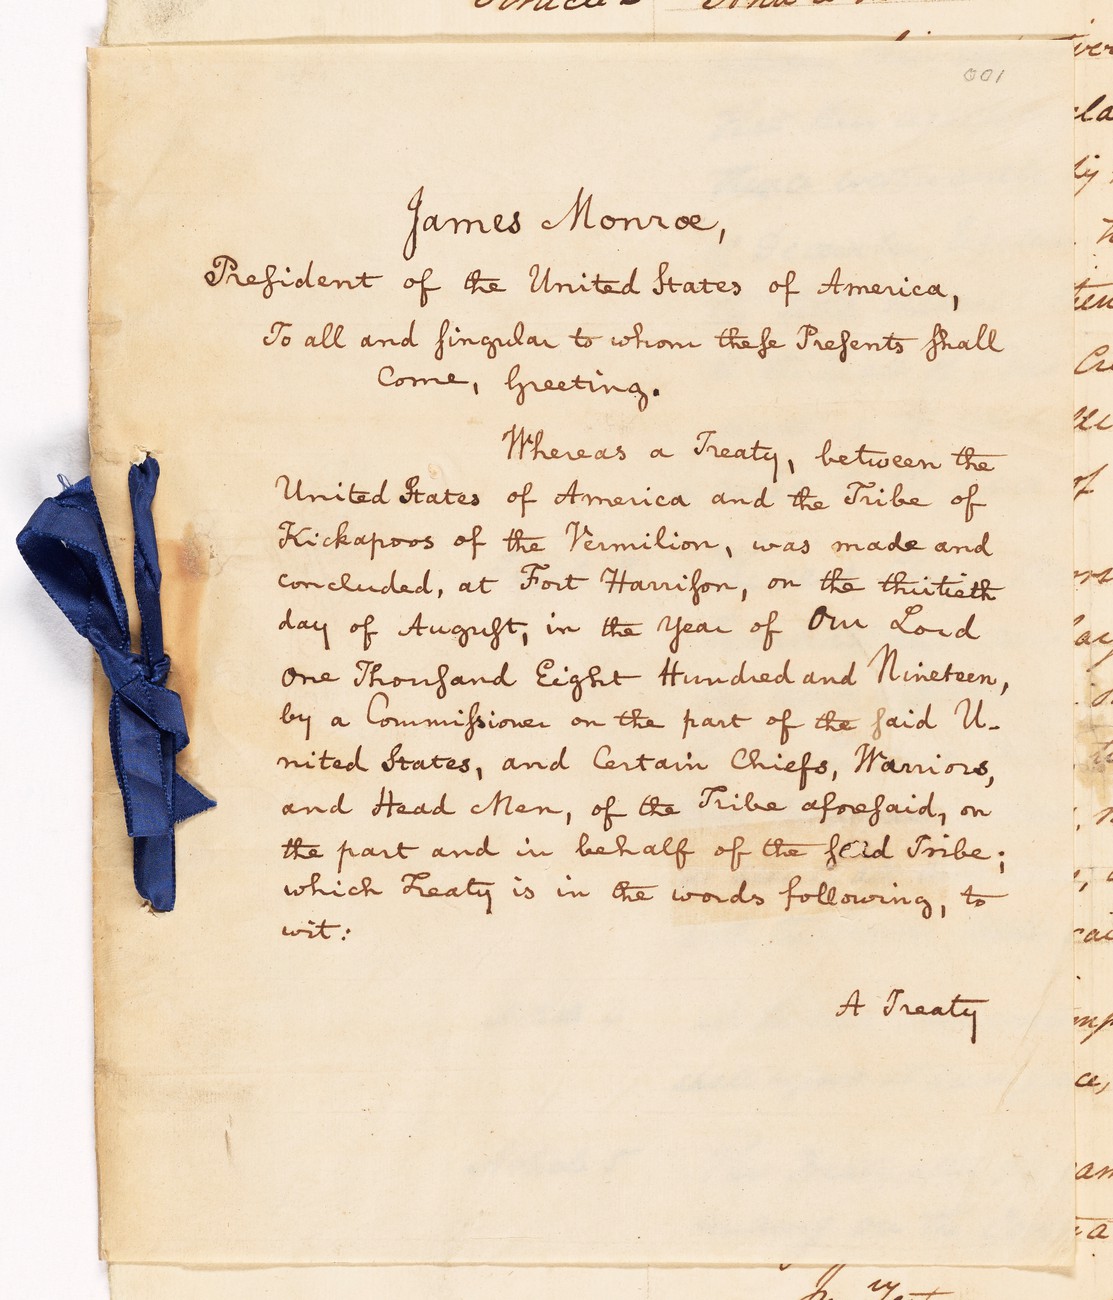 001
James Monroe,
Preſident of the United States of America,
To all and ſingular to whom theſe Preſents ſhall
Come, Greeting.
Whereas a Treaty, between the
United States of America and the Tribe of
Kickapoos of the Vermilion, was made and
concluded, at Fort Harriſon, on the thirtieth
day of Auguſt, in the Year of Our Lord
One Thouſand Eight Hundred and Nineteen,
by a Commiſsioner on the part of the ſaid U-
nited States, and Certain Chiefs, Warriors,
and Head Men, of the Tribe aforeſaid, on
the part and in behalf of the ſaid Tribe;
which Treaty is in the words following, to
wit:
A Treaty